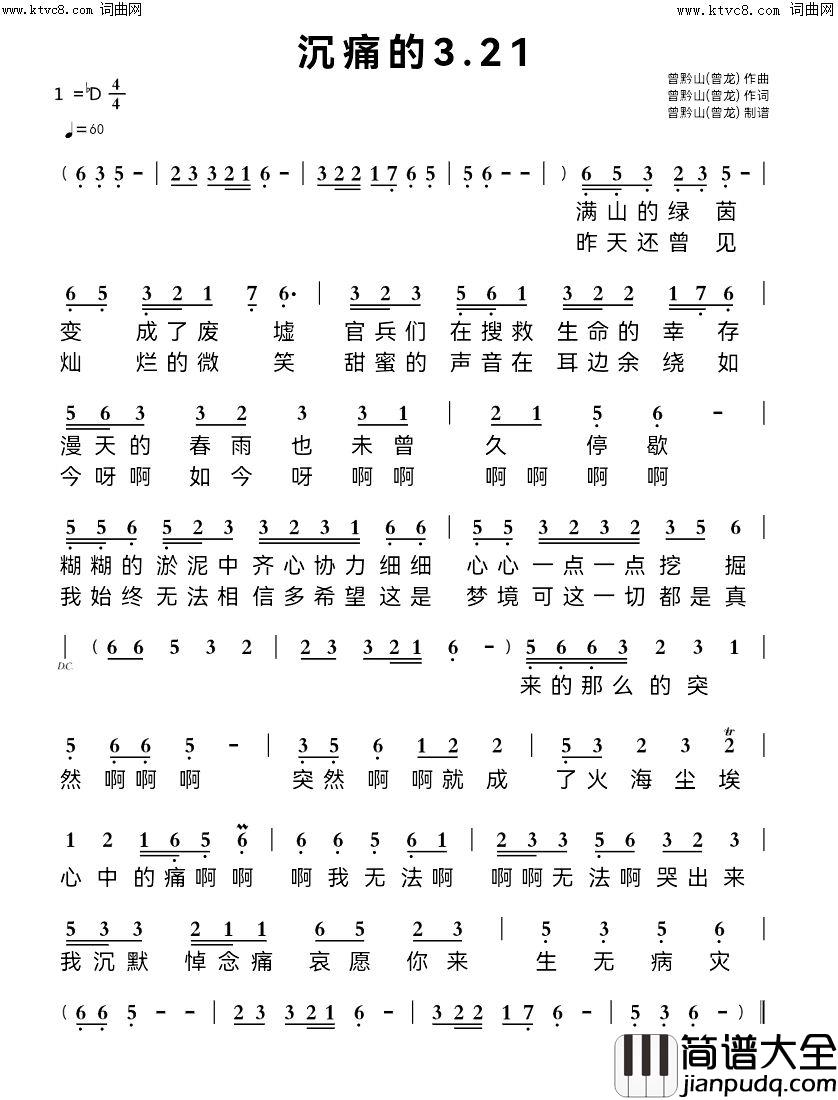 www.ktvc8.com 词曲网
www.ktvc8.com 词曲网
沉痛的3.21
1 =♭D 4/4
曾黔山(曾龙) 作曲
曾黔山(曾龙) 作词
曾黔山(曾龙) 制谱
♩=60
( 6 3 5 - | 2 3 3 2 1 6 - | 3 2 2 1 7 6 5 | 5 6 - - | ) 6 5 3 2 3 5 - |
满山的绿茵
昨天还曾见
6 5 3 2 1 7 6· | 3 2 3 5 6 1 3 2 3 1 7 6 |
变成了废墟官兵们在搜救生命的幸存
灿烂的微笑甜蜜的声音在耳边余绕如
5 6 3 3 2 3 3 1 | 2 1 5 6 - |
漫天的春雨也未曾久停歇
今呀啊如今呀啊啊啊啊啊啊
5 5 6 5 2 3 3 2 3 1 6 6 | 5 5 3 2 3 2 3 5 6 |
糊糊的淤泥中齐心协力细细心心一点一点挖掘
我始终无法相信多希望这是梦境可这一切都是真
| ( 6 6 5 3 2 | 2 3 3 2 1 6 - ) | 5 6 6 3 2 3 1 |
D.C.
来的那么的突
5 6 6 5 - | 3 5 6 1 2 2 | 5 3 2 3 2 |
tr
然啊啊啊突然啊啊就成了火海尘埃
1 2 1 6 5 6 | 6 6 5 6 1 | 2 3 3 5 6 3 2 3 |
心中的痛啊啊啊我无法啊啊啊无法啊哭出来
5 3 3 2 1 1 6 5 2 3 | 5 3 5 6 |
我沉默悼念痛哀愿你来生无病灾
( 6 6 5 - - | 2 3 3 2 1 6 - | 3 2 2 1 7 6 - | 5 3 6 - ) ‖
简谱大全
jianpudq.com